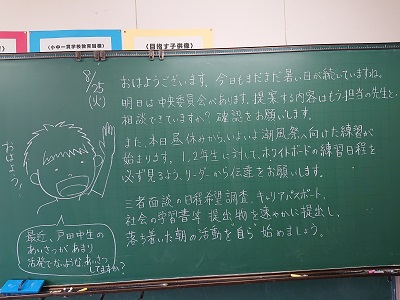 〈小中一貫学校教育目標〉
〈目指す子供像〉
8/25
(火)
おはようございます。今日もまだまだ暑い日が続いていますね。
明日は中央委員会があります。提案する内容はもう担当の先生と
相談できていますか？確認をお願いします。
また、本日昼休みから、いよいよ潮風祭へ向けた練習が
始まります。1,2年生に対して、ホワイトボードの練習日程を
必ず見るよう、リーダーから伝達をお願いします。
三者面談の日程希望調査、キャリアパスポート、
社会の学習書等 提出物を速やかに提出し、
落ち着いた朝の活動を自ら始めましょう。
おはよう。
最近、戸田中生の
あいさつがあまり
活発でないような、あいさつ
してますか？